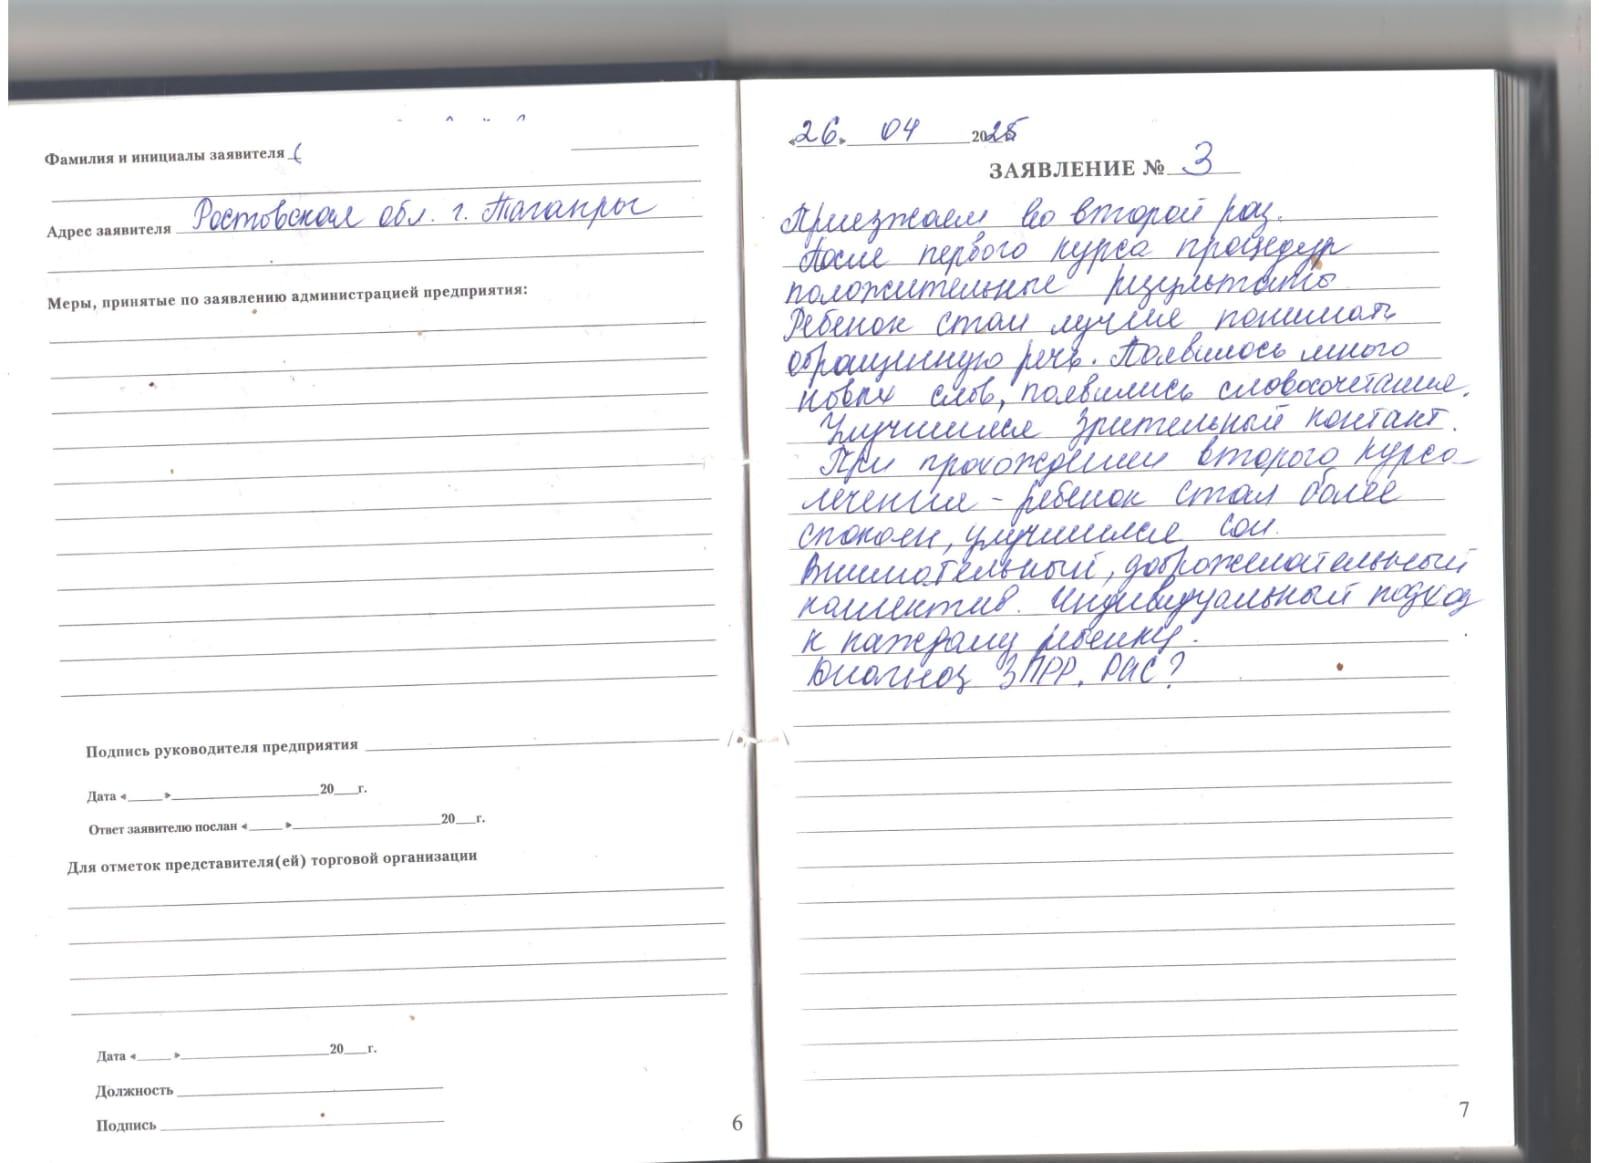 Фамилия и инициалы заявителя
Адрес заявителя Ростовская обл. г. Таганрог
Меры, принятые по заявлению администрацией предприятия:
Подпись руководителя предприятия
Дата «____»____20__г.
Ответ заявителю послан «____»____20__г.
Для отметок представителя(ей) торговой организации
Дата «____»____20__г.
Должность
Подпись
6
«26» 04 2025
ЗАЯВЛЕНИЕ № 3
Приезжаем во второй раз.
После первого курса процедур
положительные результаты
Ребенок стал лучше понимать
обращенную речь. Появилось много
новых слов, появились словосочетания.
Улучшился зрительный контакт.
При прохождении второго курса
лечения - ребенок стал более
спокоен, улучшился сон.
Внимательный, доброжелательный
коллектив. Индивидуальный подход
к каждому ребенку.
Диагноз ЗПРР. РАС?
7